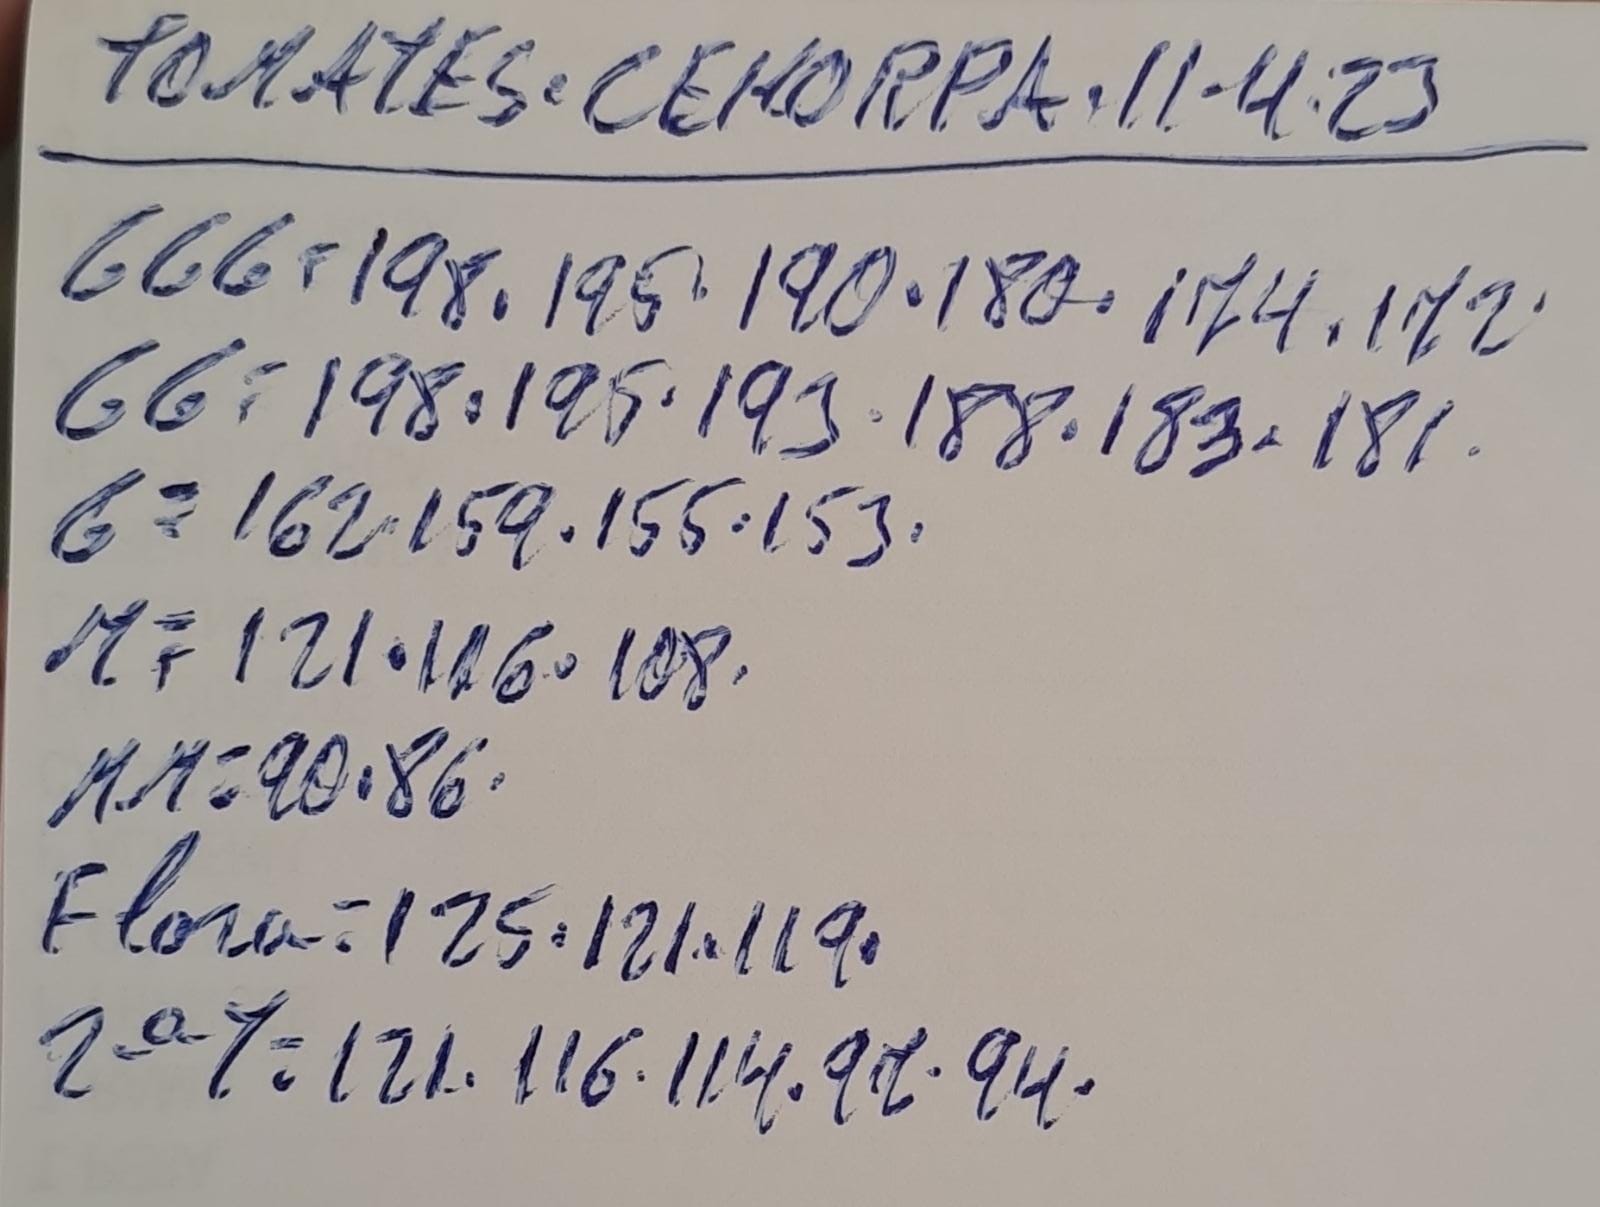 TOMATES. CEHORPA. 11-4-23
GGG = 198. 195. 190. 180. 174. 172.
GG = 198. 195. 193. 188. 183. 181.
G = 162. 159. 155. 153.
M = 121. 116. 108.
MM = 90. 86.
Flora = 125. 121. 119.
2ª Y = 121. 116. 114. 97. 94.